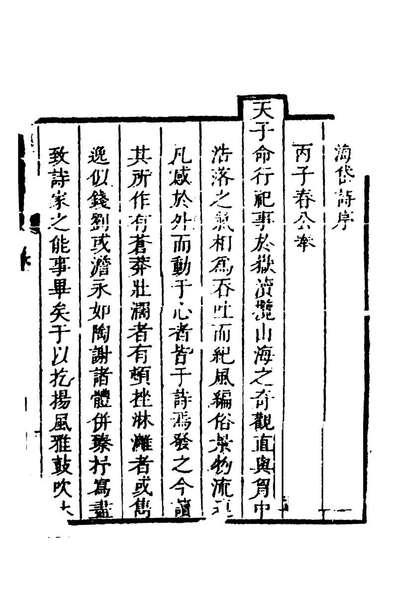 海岱詩序
丙子春公奉
天子命行祀事於嶽瀆攬山海之奇觀直與胷中
浩落之氣相爲吞吐而紀風編俗景物流
凡感於外而動于心者皆于詩焉發之今讀
其所作有蒼莽壯濶者有頓挫淋漓者或雋
逸似錢劉或澹永如陶謝諸體併臻抒寫盡
致詩家之能事畢矣于以扢揚風雅鼓吹大